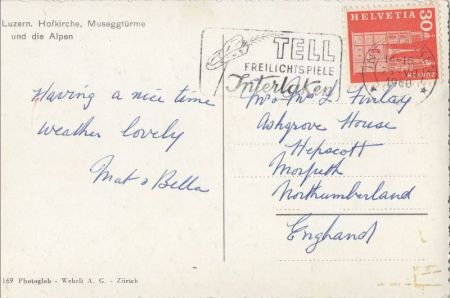 Luzern. Hofkirche, Museggtürme
und die Alpen
TELL
FREILICHTSPIELE
Interlaken
HELVETIA
30
1960
Having a nice time
weather lovely
Mat & Bella
Mr & Mrs L Finlay
Ashgrove House
Hepscott
Morpeth
Northumberland
England
169 Photoglob - Wehrli A. G. - Zürich